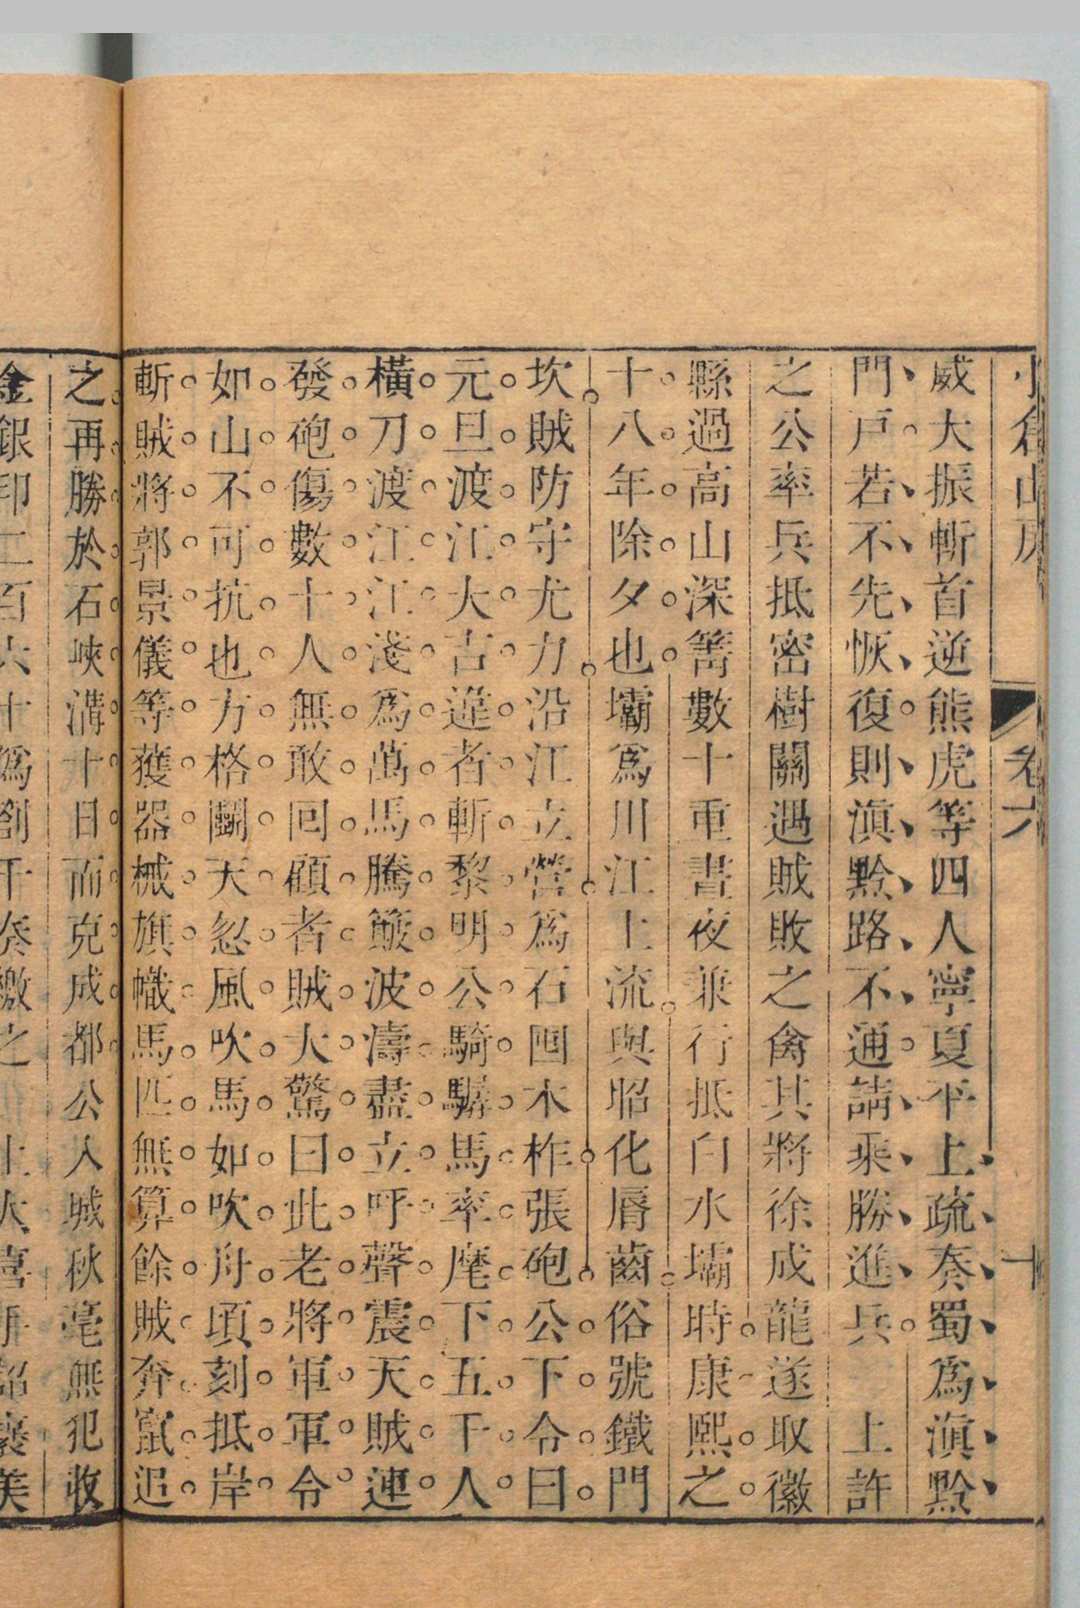 小倉山房 卷六 十
威大振斬首逆熊虎等四人寧夏平上疏奏蜀為滇黔
門戶若不先恢復則滇黔路不通請乘勝進兵 上許
之公率兵抵密樹關遇賊敗之禽其將徐成龍遂取徽
縣過高山深箐數十重晝夜兼行抵白水壩時康熙之
十八年除夕也壩爲川江上流與昭化唇齒俗號鐵門
坎賊防守尤力沿江立營爲石囤木柞張砲公下令曰
元旦渡江大吉違者斬黎明公騎驏馬率麾下五千人
橫刀渡江江淺爲萬馬騰簸波濤盡立呼聲震天賊連
發砲傷數十人無敢回顧者賊大驚曰此老將軍軍令
如山不可抗也方格鬬天忽風吹馬如吹舟頃刻抵岸
斬賊將郭景儀等獲器械旗幟馬匹無算餘賊奔竄追
之再勝於石峽溝十日而克成都公入城秋毫無犯收
金銀印二百六十爲劄千奏繳之 上大喜手詔褒美